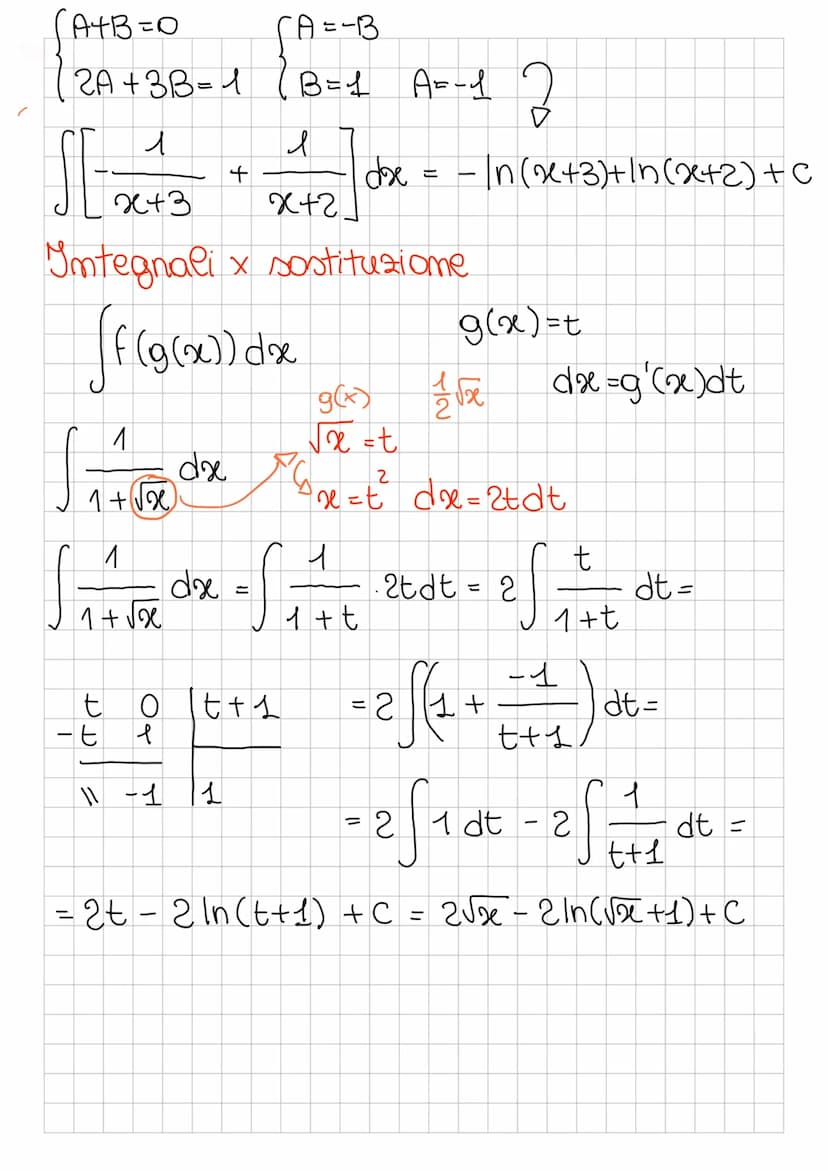 {A+B=0 {A=-B
{2A+3B=1 {B=1 A=-1 ?
∫[-1/(x+3) + 1/(x+2)]dx = -ln(x+3)+ln(x+2)+C
Integrali x sostituzione
∫f(g(x))dx g(x)=t
dx=g'(x)dt
g(x) 1/2√x
∫1/(1+√x) dx √x=t
x=t² dx=2tdt
∫1/(1+√x) dx = ∫1/(1+t) ·2tdt = 2∫t/(1+t) dt=
t 0 |t+1 =2∫(1+ -1/(t+1))dt=
-t 1
\\ -1 |1
=2∫1dt - 2∫1/(t+1) dt =
=2t - 2ln(t+1) +C = 2√x - 2ln(√x+1)+C